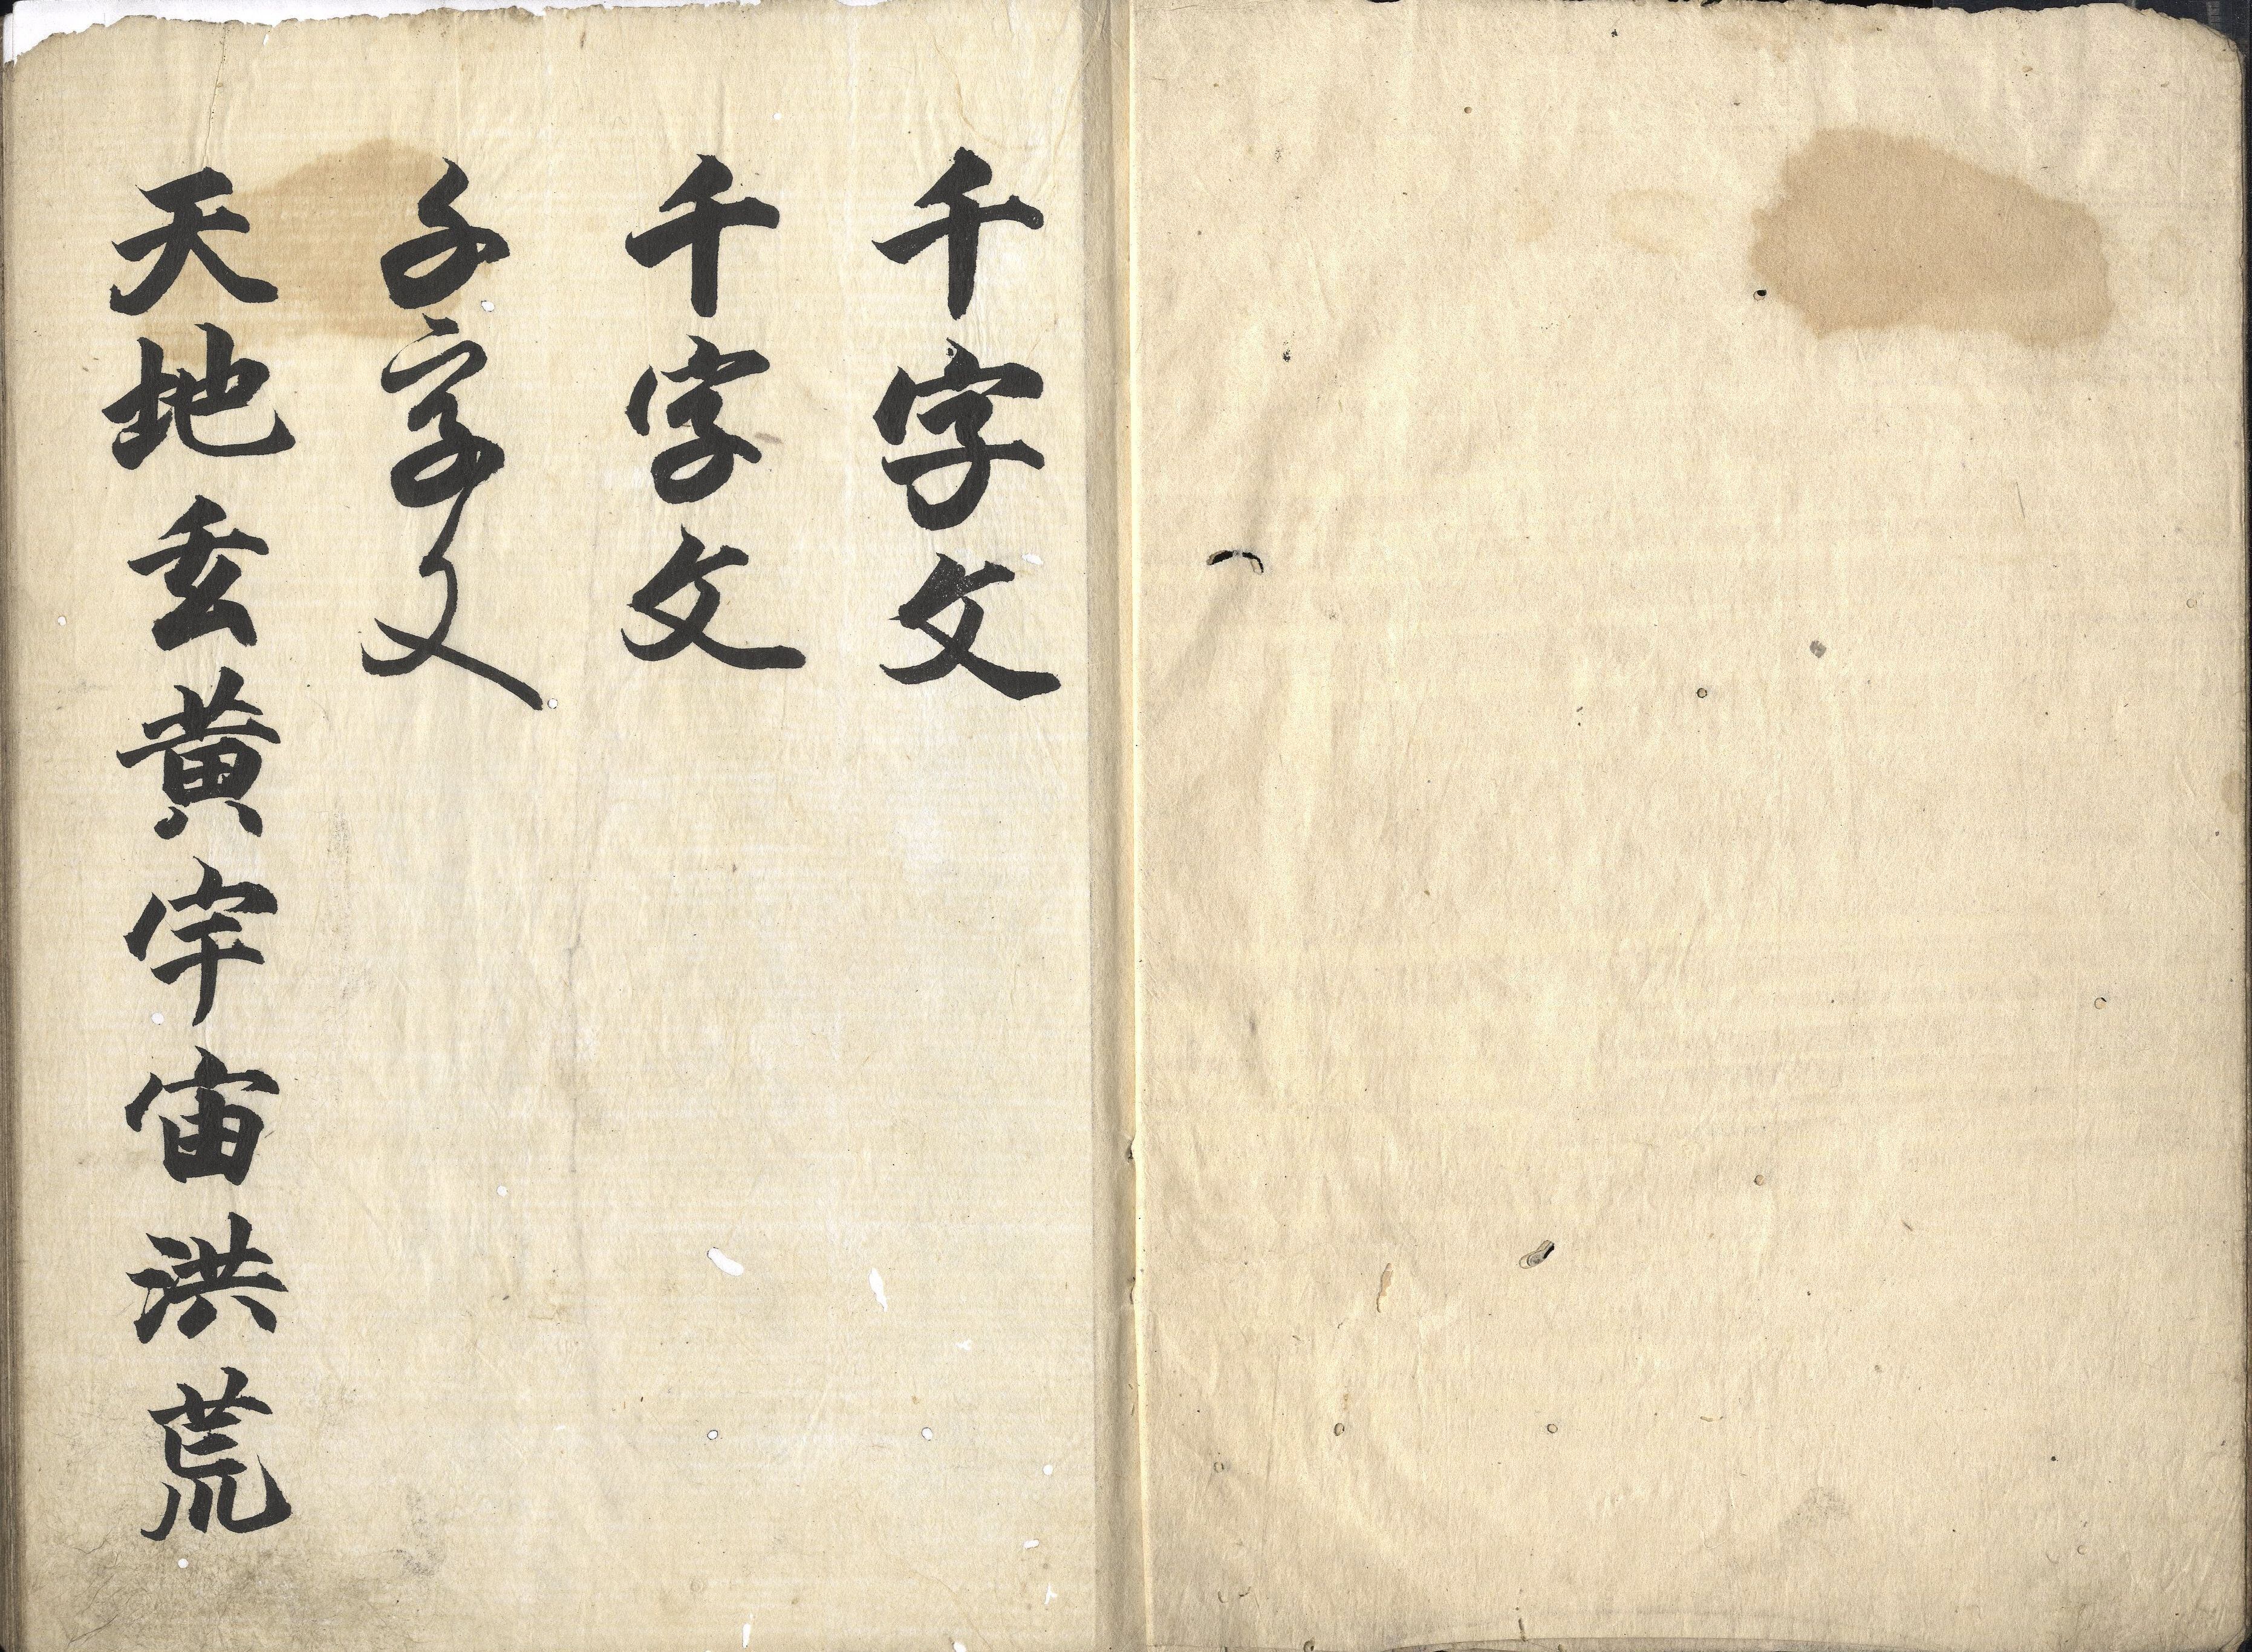 千字文
千字文
千字文
天地玄黃宇宙洪荒